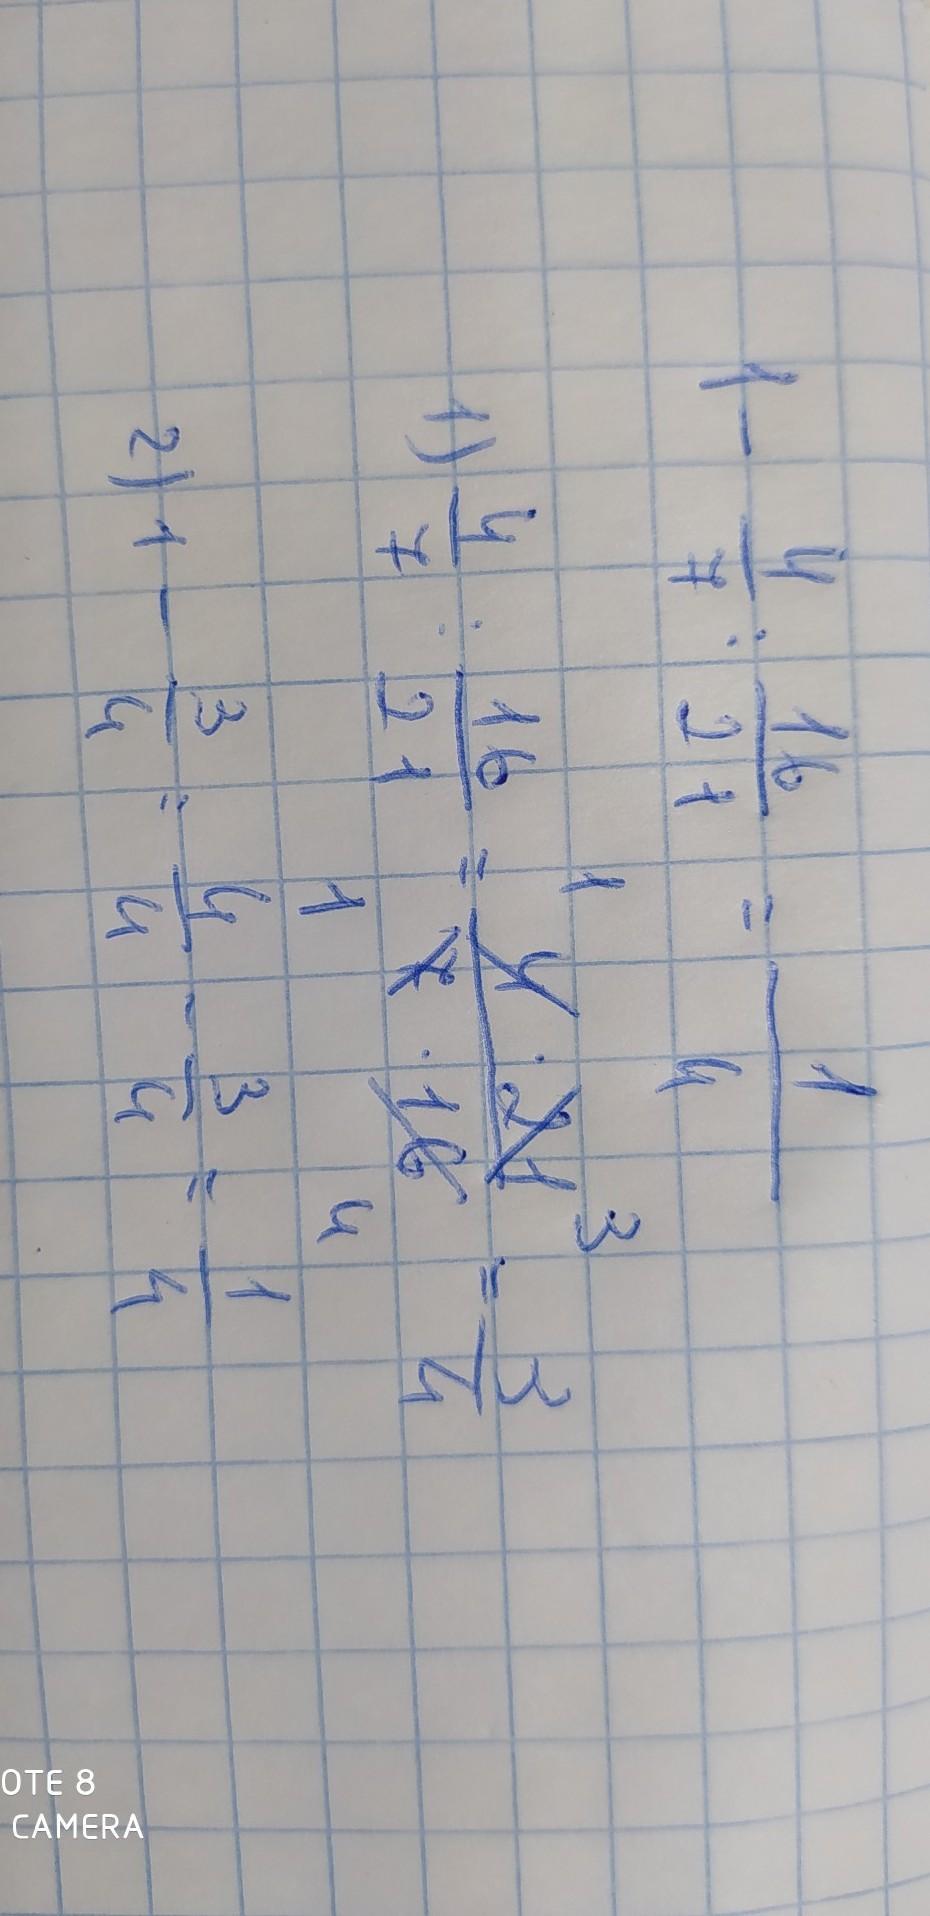 1 - 4/7 : 16/21 = 1/4
1) 4/7 : 16/21 = 4 1 · 21 3 / 7 1 · 16 4 = 3/4
2) 1 - 3/4 = 4/4 - 3/4 = 1/4
OTE 8
CAMERA